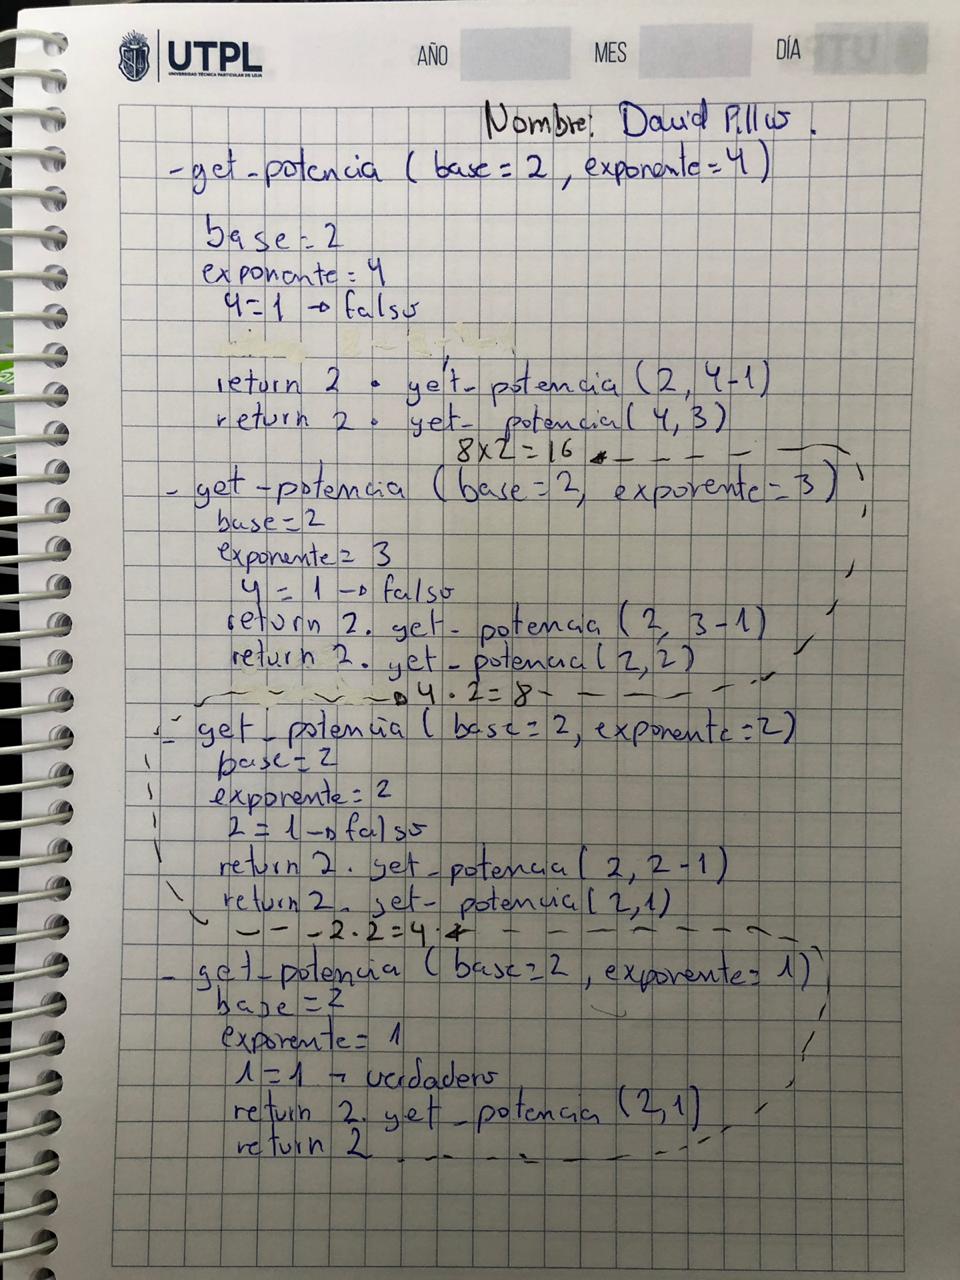 UTPL
UNIVERSIDAD TÉCNICA PARTICULAR DE LOJA
AÑO MES DÍA
Nombre: David Pillus.
- get-potencia (base = 2, exponente = 4)
base = 2
exponente = 4
4 = 1 → falso
return 2 · get-potencia (2, 4-1)
return 2 · get-potencia (4, 3)
8x2 = 16
- get-potencia (base = 2, exporente = 3)
base = 2
exponente = 3
4 = 1 → falso
return 2. get-potencia (2, 3-1)
return 2. get-potencia (2, 2)
4 · 2 = 8
- get-potencia (base = 2, exponente = 2)
base = 2
exporente = 2
2 = 1 → falso
return 2. get-potencia (2, 2-1)
return 2. get-potencia (2, 1)
2 · 2 = 4
- get-potencia (base = 2, exporente = 1)
base = 2
exporente = 1
1 = 1 → verdadero
return 2. get-potencia (2, 1)
return 2